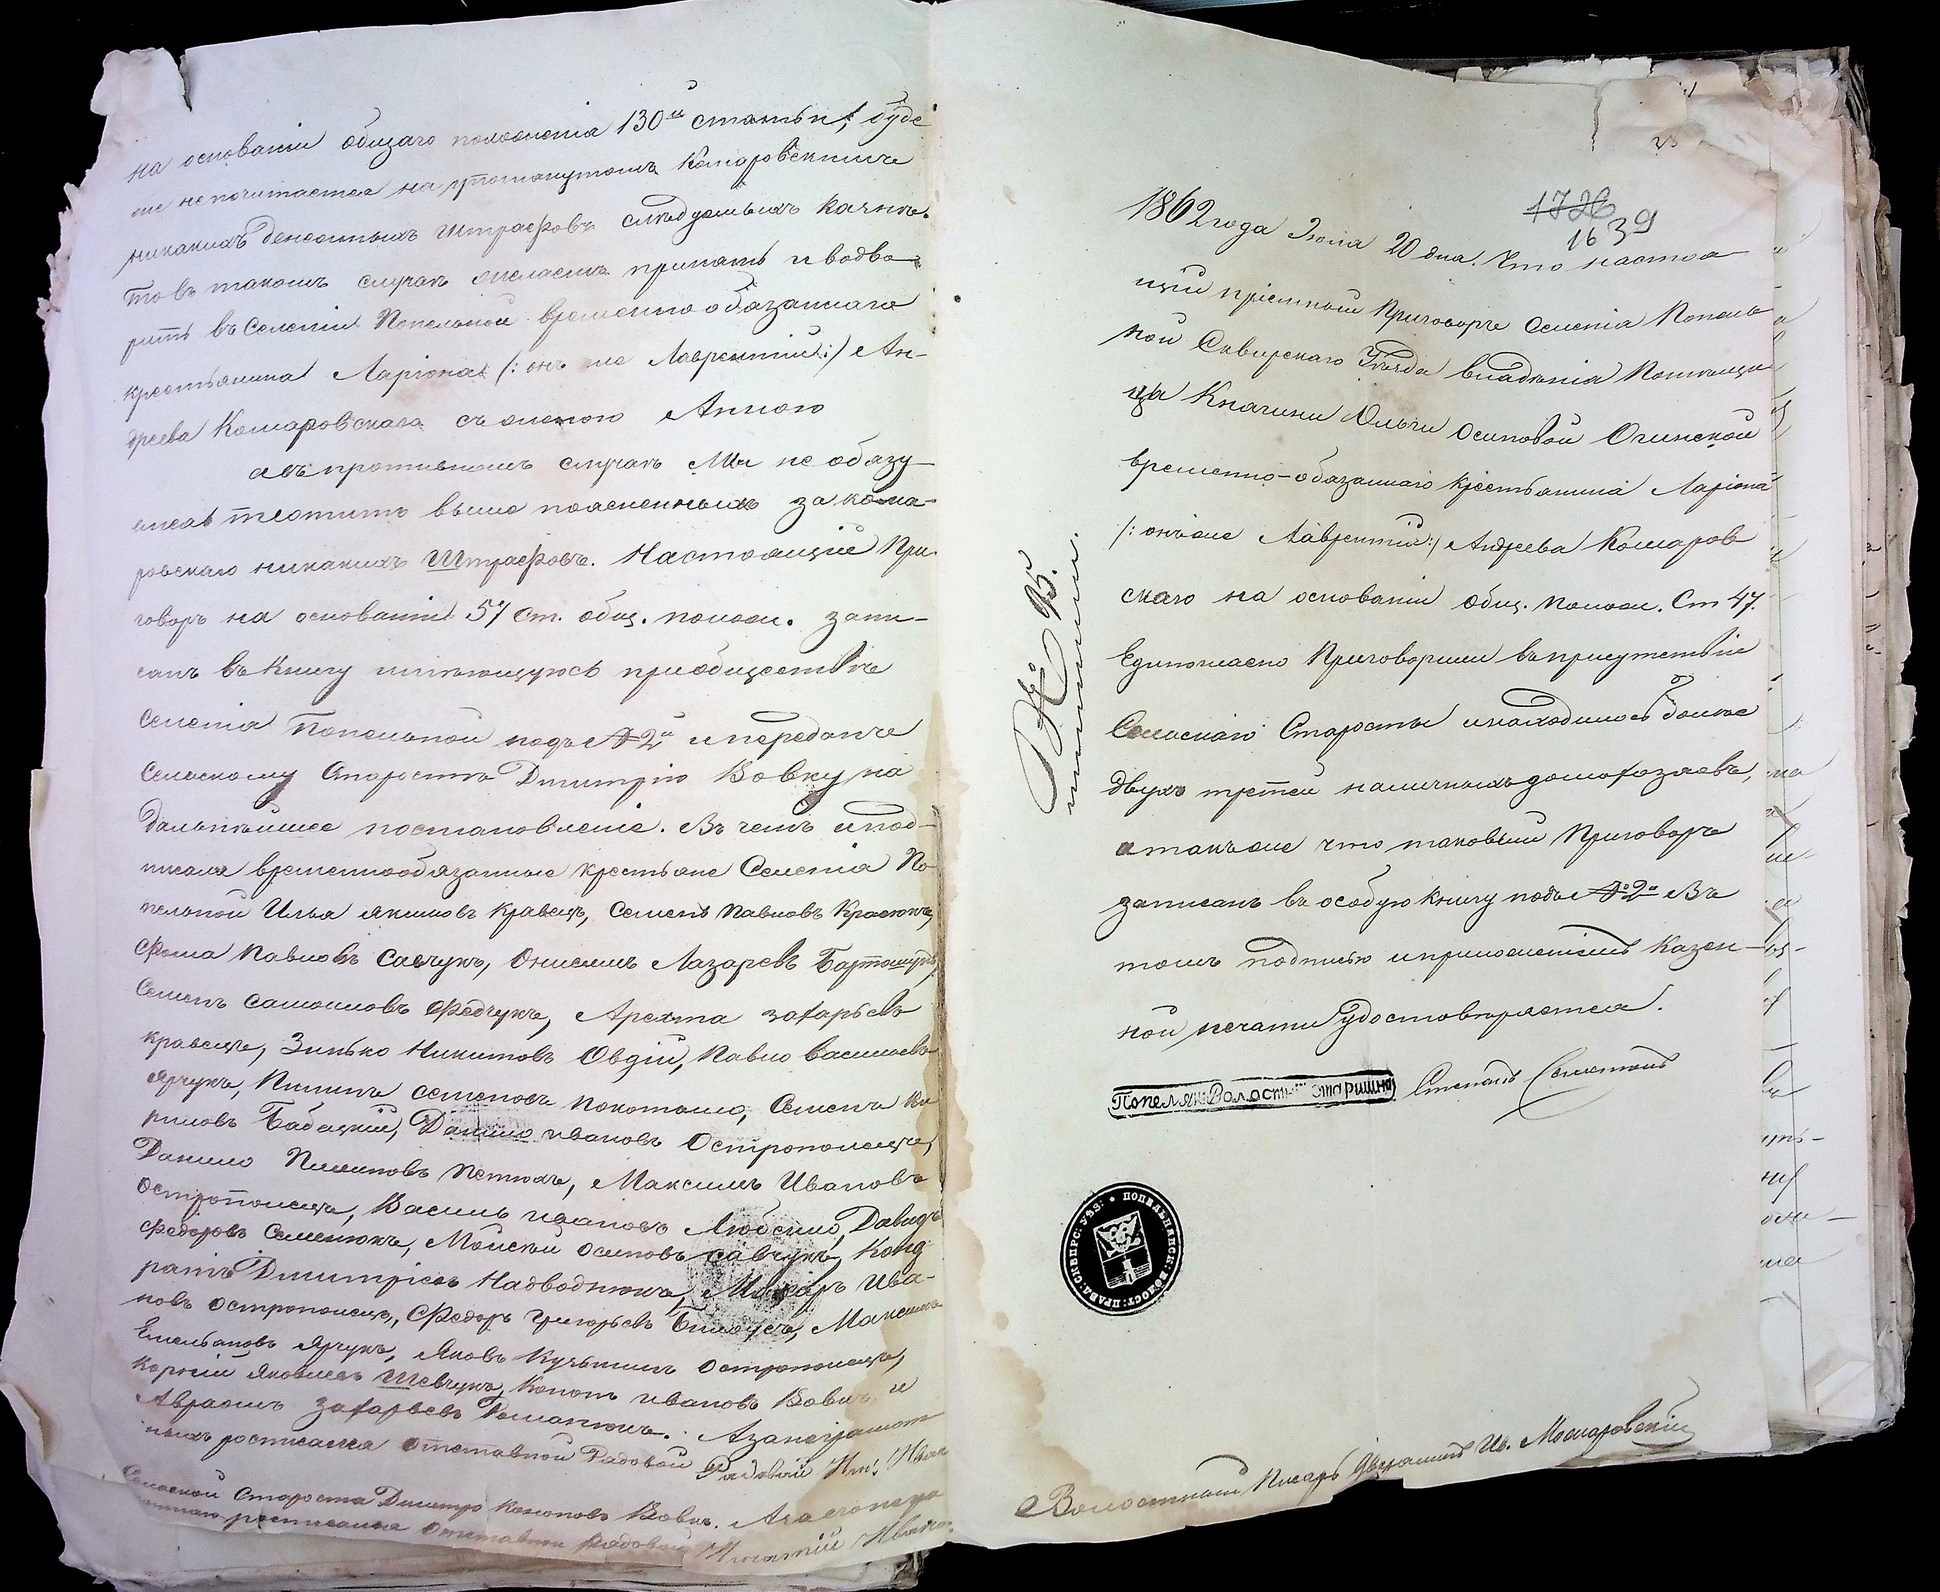 на основаніи общаго положенія 130й статьи, буде
же непочитается на упомянутомъ Комаровскимъ
никакихъ денежныхъ штрафовъ слѣдуемыхъ
то въ такомъ случаѣ желаемъ принять и водво-
рить въ Селеніи Попельной временно обязаннаго
крестьянина Ларіона /: онъ же Лаврентій :/ Ан-
дреева Комаровскаго съ женою Анною
а въ противномъ случаѣ Мы не обязу-
емся платить выше поясненныхъ за Кома-
ровскаго никакихъ Штрафовъ. Настоящій При-
говоръ на основаніи 57 ст. общ. полож. запи-
санъ въ Книгу имѣющуюся при обществѣ
Селенія Попельной подъ № 2й и переданъ
Сельскому Старостѣ Дмитрію Вовку на
дальнѣйшее постановленіе. Въ чемъ и под-
писали временнообязанные крестьяне Селенія По-
пельной Илья Якимовъ Кравецъ, Семенъ Павловъ Краснюкъ,
Фома Павловъ Савчукъ, Онисимъ Лазаревъ
Семенъ Самойловъ Федчукъ, Арехта Захарьевъ
Кравецъ, Зинько Никитовъ Овдій, Павло Васильевъ
Ярчукъ, Пилипъ Семеновъ Покотило, Семенъ Ки
риловъ Бабацкій, Данило Ивановъ Острополецъ,
Данило Пилиповъ Петюхъ, Максимъ Ивановъ
Острополецъ, Василь Ивановъ Давидъ
Федоровъ Семенюкъ, Мойсей Осиповъ Савчукъ, Конд
ратъ Дмитріевъ Надводнюкъ, Макаръ Ива-
новъ Острополецъ, Федоръ Григорьевъ Билоусъ, Максимъ
Емельяновъ Ярчукъ, Яковъ Кузьминъ Острополецъ,
Корній Яковлевъ Шевчукъ, Кононъ Ивановъ Вовкъ и
Авраамъ Захарьевъ Романюкъ. А за неграмот
ныхъ росписался отставной Рядовой Рядовой
Сельской Староста Дмитро Кононовъ Вовкъ. А за его негра
мотнаго росписался отставной Рядовой Игнатій
1726
1639
1862 года Іюля 20 дня. Что настоя-
щій пріемный Приговоръ Селенія Попель
ной Сквирскаго Уѣзда владѣнія Помѣщи
ца Княгини Ольги Осиповой Огинской
временно-обязаннаго крестьянина Ларіона
/: онъ же Лаврентій :/ Андреева Комаров
скаго на основаніи общ. полож. Ст 47.
Единогласно Приговорили въ присутствіи
Сельскаго Старосты и находилось болѣе
двухъ третей наличныхъ домохозяевъ,
а также что таковый Приговоръ
записанъ въ особую книгу подъ № 2й Въ
томъ подписью и приложеніемъ Казен-
ной печати удостовѣряется.
№ 95.
Попелян: Волостный старшина
ПОПЕЛЬНЯНСК: ВОЛОСТ: ПРАВЛ: СКВИРС: УѢЗ:
Волостный Писарь Дворянинъ Ив. Мошаровскій